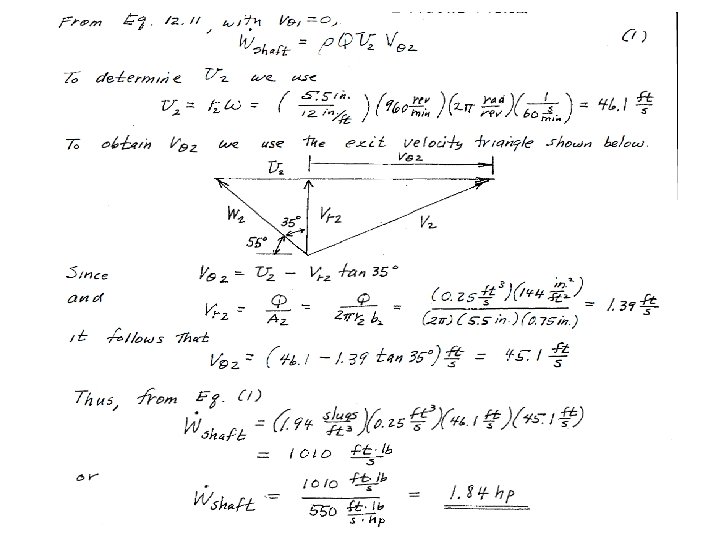 From Eq. 12.11, with Vθ1 = 0,
Ẇshaft = ρQU2 Vθ2 (1)
To determine U2 we use
U2 = r2ω = (5.5 in. / 12 in/ft)(960 rev/min)(2π rad/rev)(1 / 60 s/min) = 46.1 ft/s
To obtain Vθ2 we use the exit velocity triangle shown below.
Vθ2
U2
W2 35° Vr2 V2
55°
Since Vθ2 = U2 - Vr2 tan 35°
and Vr2 = Q/A2 = Q/2πr2 b2 = (0.25 ft³/s)(144 in²/ft²) / (2π)(5.5 in.)(0.75 in.) = 1.39 ft/s
it follows that
Vθ2 = (46.1 - 1.39 tan 35°) ft/s = 45.1 ft/s
Thus, from Eq. (1)
Ẇshaft = (1.94 slugs/ft³)(0.25 ft³/s)(46.1 ft/s)(45.1 ft/s)
= 1010 ft·lb/s
or
Ẇshaft = 1010 ft·lb/s / 550 ft·lb/s·hp = 1.84 hp